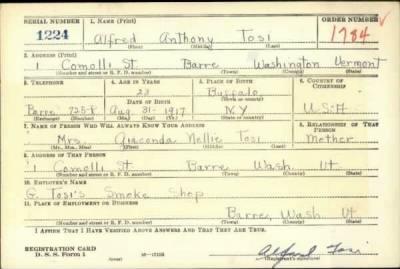 SERIAL NUMBER 1. NAME (Print) ORDER NUMBER
1224 Alfred Anthony Tosi 1784
(First) (Middle) (Last)
2. ADDRESS (Print)
1 Comolli St. Barre Washington Vermont
(Number and street or R. F. D. number) (Town) (County) (State)
3. TELEPHONE 4. AGE IN YEARS 5. PLACE OF BIRTH 6. COUNTRY OF CITIZENSHIP
23 Buffalo
DATE OF BIRTH (Town or county)
Barre 725-R Aug 31-1917 N.Y U.S.A
(Exchange) (Number) (Mo.) (Day) (Yr.) (State or country)
7. NAME OF PERSON WHO WILL ALWAYS KNOW YOUR ADDRESS 8. RELATIONSHIP OF THAT PERSON
Mrs. Giaconda Nellie Tosi Mother
(Mr., Mrs., Miss) (First) (Middle) (Last)
9. ADDRESS OF THAT PERSON
1 Comolli St Barre, Wash. Vt
(Number and street or R. F. D. number) (Town) (County) (State)
10. EMPLOYER'S NAME
G. Tosi's Smoke Shop
11. PLACE OF EMPLOYMENT OR BUSINESS
Barre, Wash. Vt.
(Number and street or R. F. D. number) (Town) (County) (State)
I AFFIRM THAT I HAVE VERIFIED ABOVE ANSWERS AND THAT THEY ARE TRUE.
REGISTRATION CARD
D. S. S. Form 1 Alfred Tosi
(Registrant's signature)